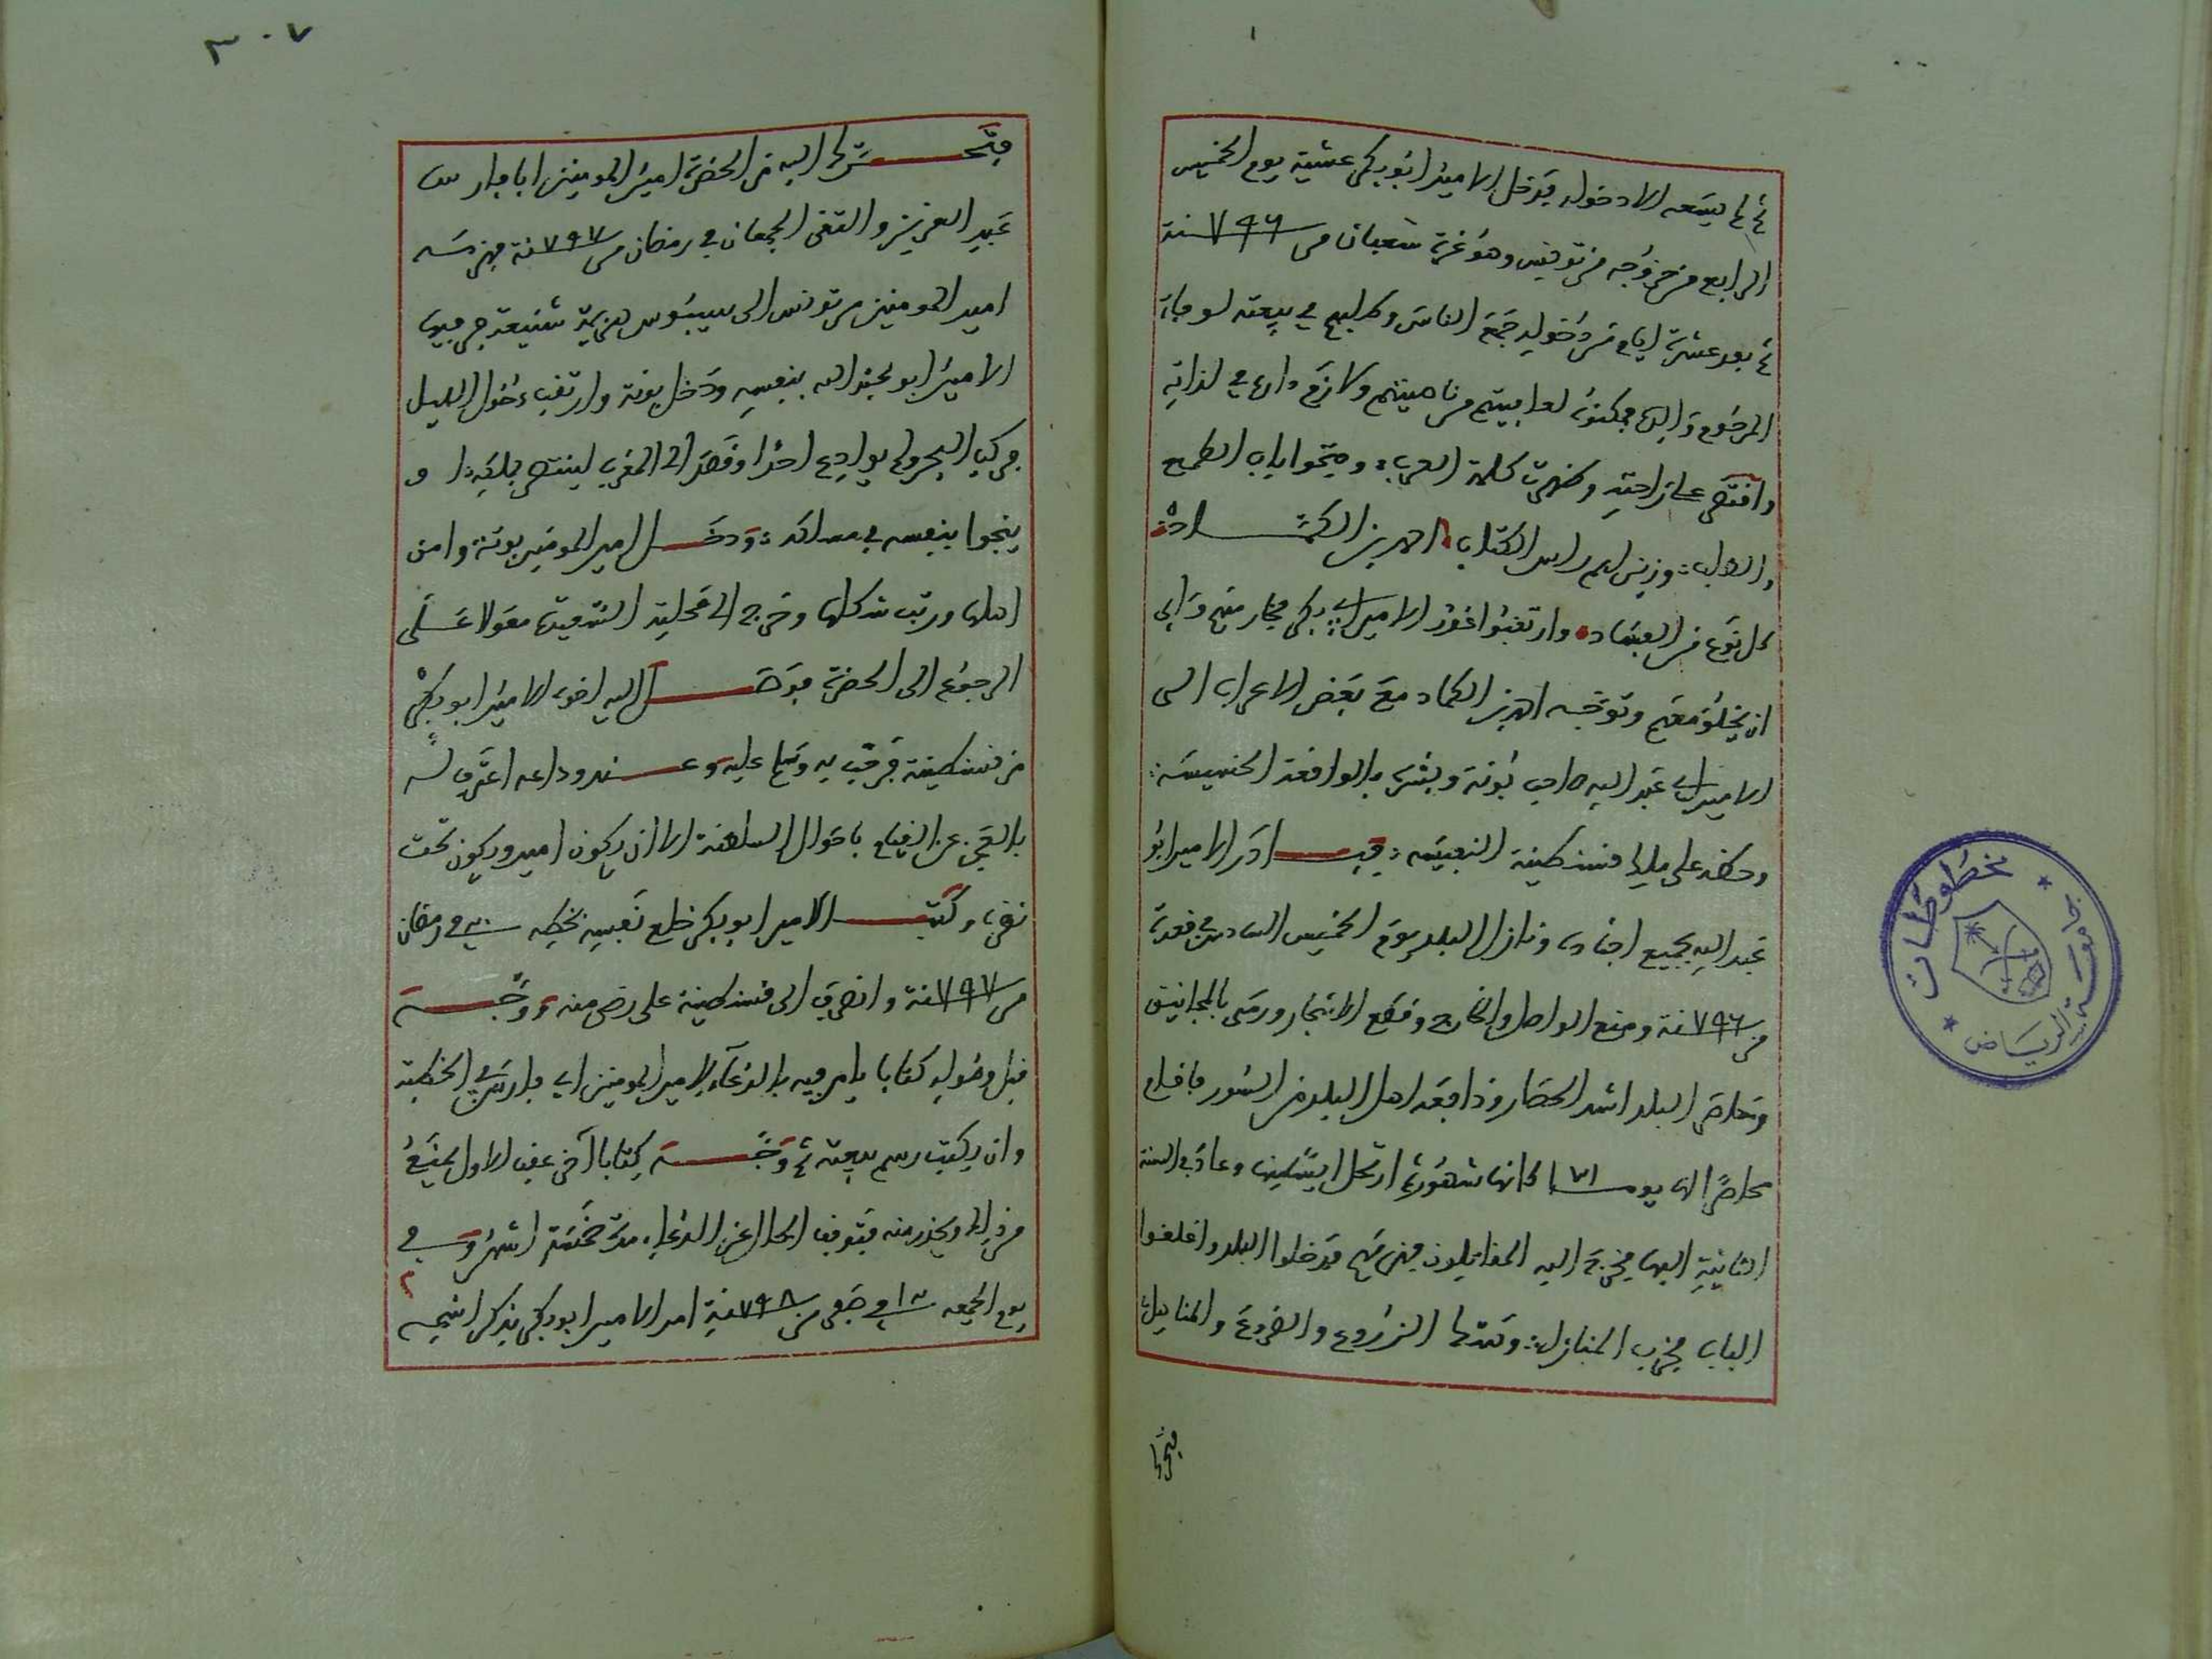 ثم لم يسعه الا دخوله فدخل الامير ابو بكر عشية يوم الخميس
الرابع من خروجه من تونس وهو غرة شعبان من سنة ٧٩٦
ثم بعد عشرة ايام من دخوله جمع الناس وطلبهم في بيعته لوفاة
المرحوم والده فمكنوه لعافيتهم من ناحيتهم ولازم داره في لذاته
واقتصر على راحته وظهرت كلمة العرب وفتحوا باب الطمع
والطلب وزين لهم راس الكتاب احمد بن الكماد
كل نوع من الفساد وارتقبوا غدر الامير ابي بكر فحار منهم وابى
ان يخلو معهم وتوجه احمد بن الكماد مع بعض الاعراب الى
الامير ابي عبد الله صاحب بونة وبشره بالواقعة الخسيسة
وحضه على ملك قسنطينة النفيسة فبادر الامير ابو
عبد الله بجميع اجناده ونازل البلد يوم الخميس السادس من قعدة
من سنة ٧٩٦ ومنع الواصل والخارج وقطع الاشجار ورمى بالمجانيق
وحاصر البلد اشد الحصار ودافعه اهل البلد من السور فاقام
محاصرا لها يوما ٧١ كانها شهور ثم ارتحل وعاد في السنة
الثانية اليها فخرج اليه المقاتلون فهزمهم فدخلوا البلد واغلقوا
الباب فخرب المنازل وتتبع الزروع والضروع والمناهل
فتحرك
٣٠٧
فتحرك اليه من الحضرة امير المومنين ابا فارس
عبد العزيز والتقى الجمعان في رمضان من سنة ٧٩٧ فهزمه
امير المومنين من تونس الى سيبوس هزيمة شنيعة فر فيها
الامير ابو عبد الله بنفسه ودخل بونة وارتقب دخول الليل
فركب البحر ولم يوادع احدا وقصد الى المغرب لينتصر بملكه او
ينجوا بنفسه في مسالكه ودخل امير المومنين بونة وامن
اهلها ورتب شكلها وخرج الى محلته الشرقية معولا على
الرجوع الى الحضرة فوصل اليه اخوه الامير ابو بكر
من قسنطينة فرحب به وسلم عليه وعند وداعه اعترف له
بالعجز عن القيام باحوال السلطنة الا ان يكون امير ويكون تحت
نظره وكتب الامير ابو بكر خلع نفسه بخطه في رمضان
من سنة ٧٩٧ وانصرف الى قسنطينة على رضى منه ووجه
قبل وصوله كتابا يامر فيه بالدعاء لامير المومنين ابي فارس في الخطبة
وان يكتب رسم بيعته ثم وجه كتابا اخر عقب الاول يمنع
من ذلك ويحذر منه فتوقف الحال عن الدعاء مدة خمسة اشهر وفي
يوم الجمعة في صفر من سنة ٧٩٨ امر الامير ابو بكر بذكر اخيه
جامعة الرياض
مخطوطات